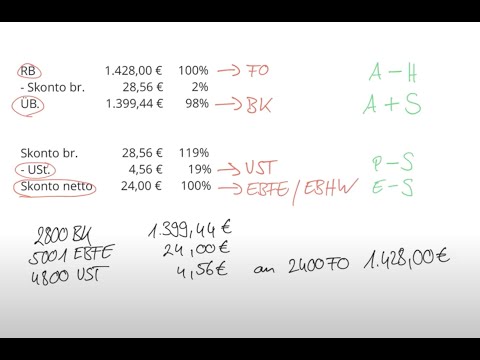 RB 1.428,00 € 100% → FO A - H
- Skonto br. 28,56 € 2%
ÜB. 1.399,44 € 98% → BK A + S
Skonto br. 28,56 € 119%
- USt. 4,56 € 19% → UST P - S
Skonto netto 24,00 € 100% → EBFE / EBHW E - S
2800 BK 1.399,44 €
5001 EBFE 24,00 €
4800 UST 4,56 € an 2400 FO 1.428,00 €